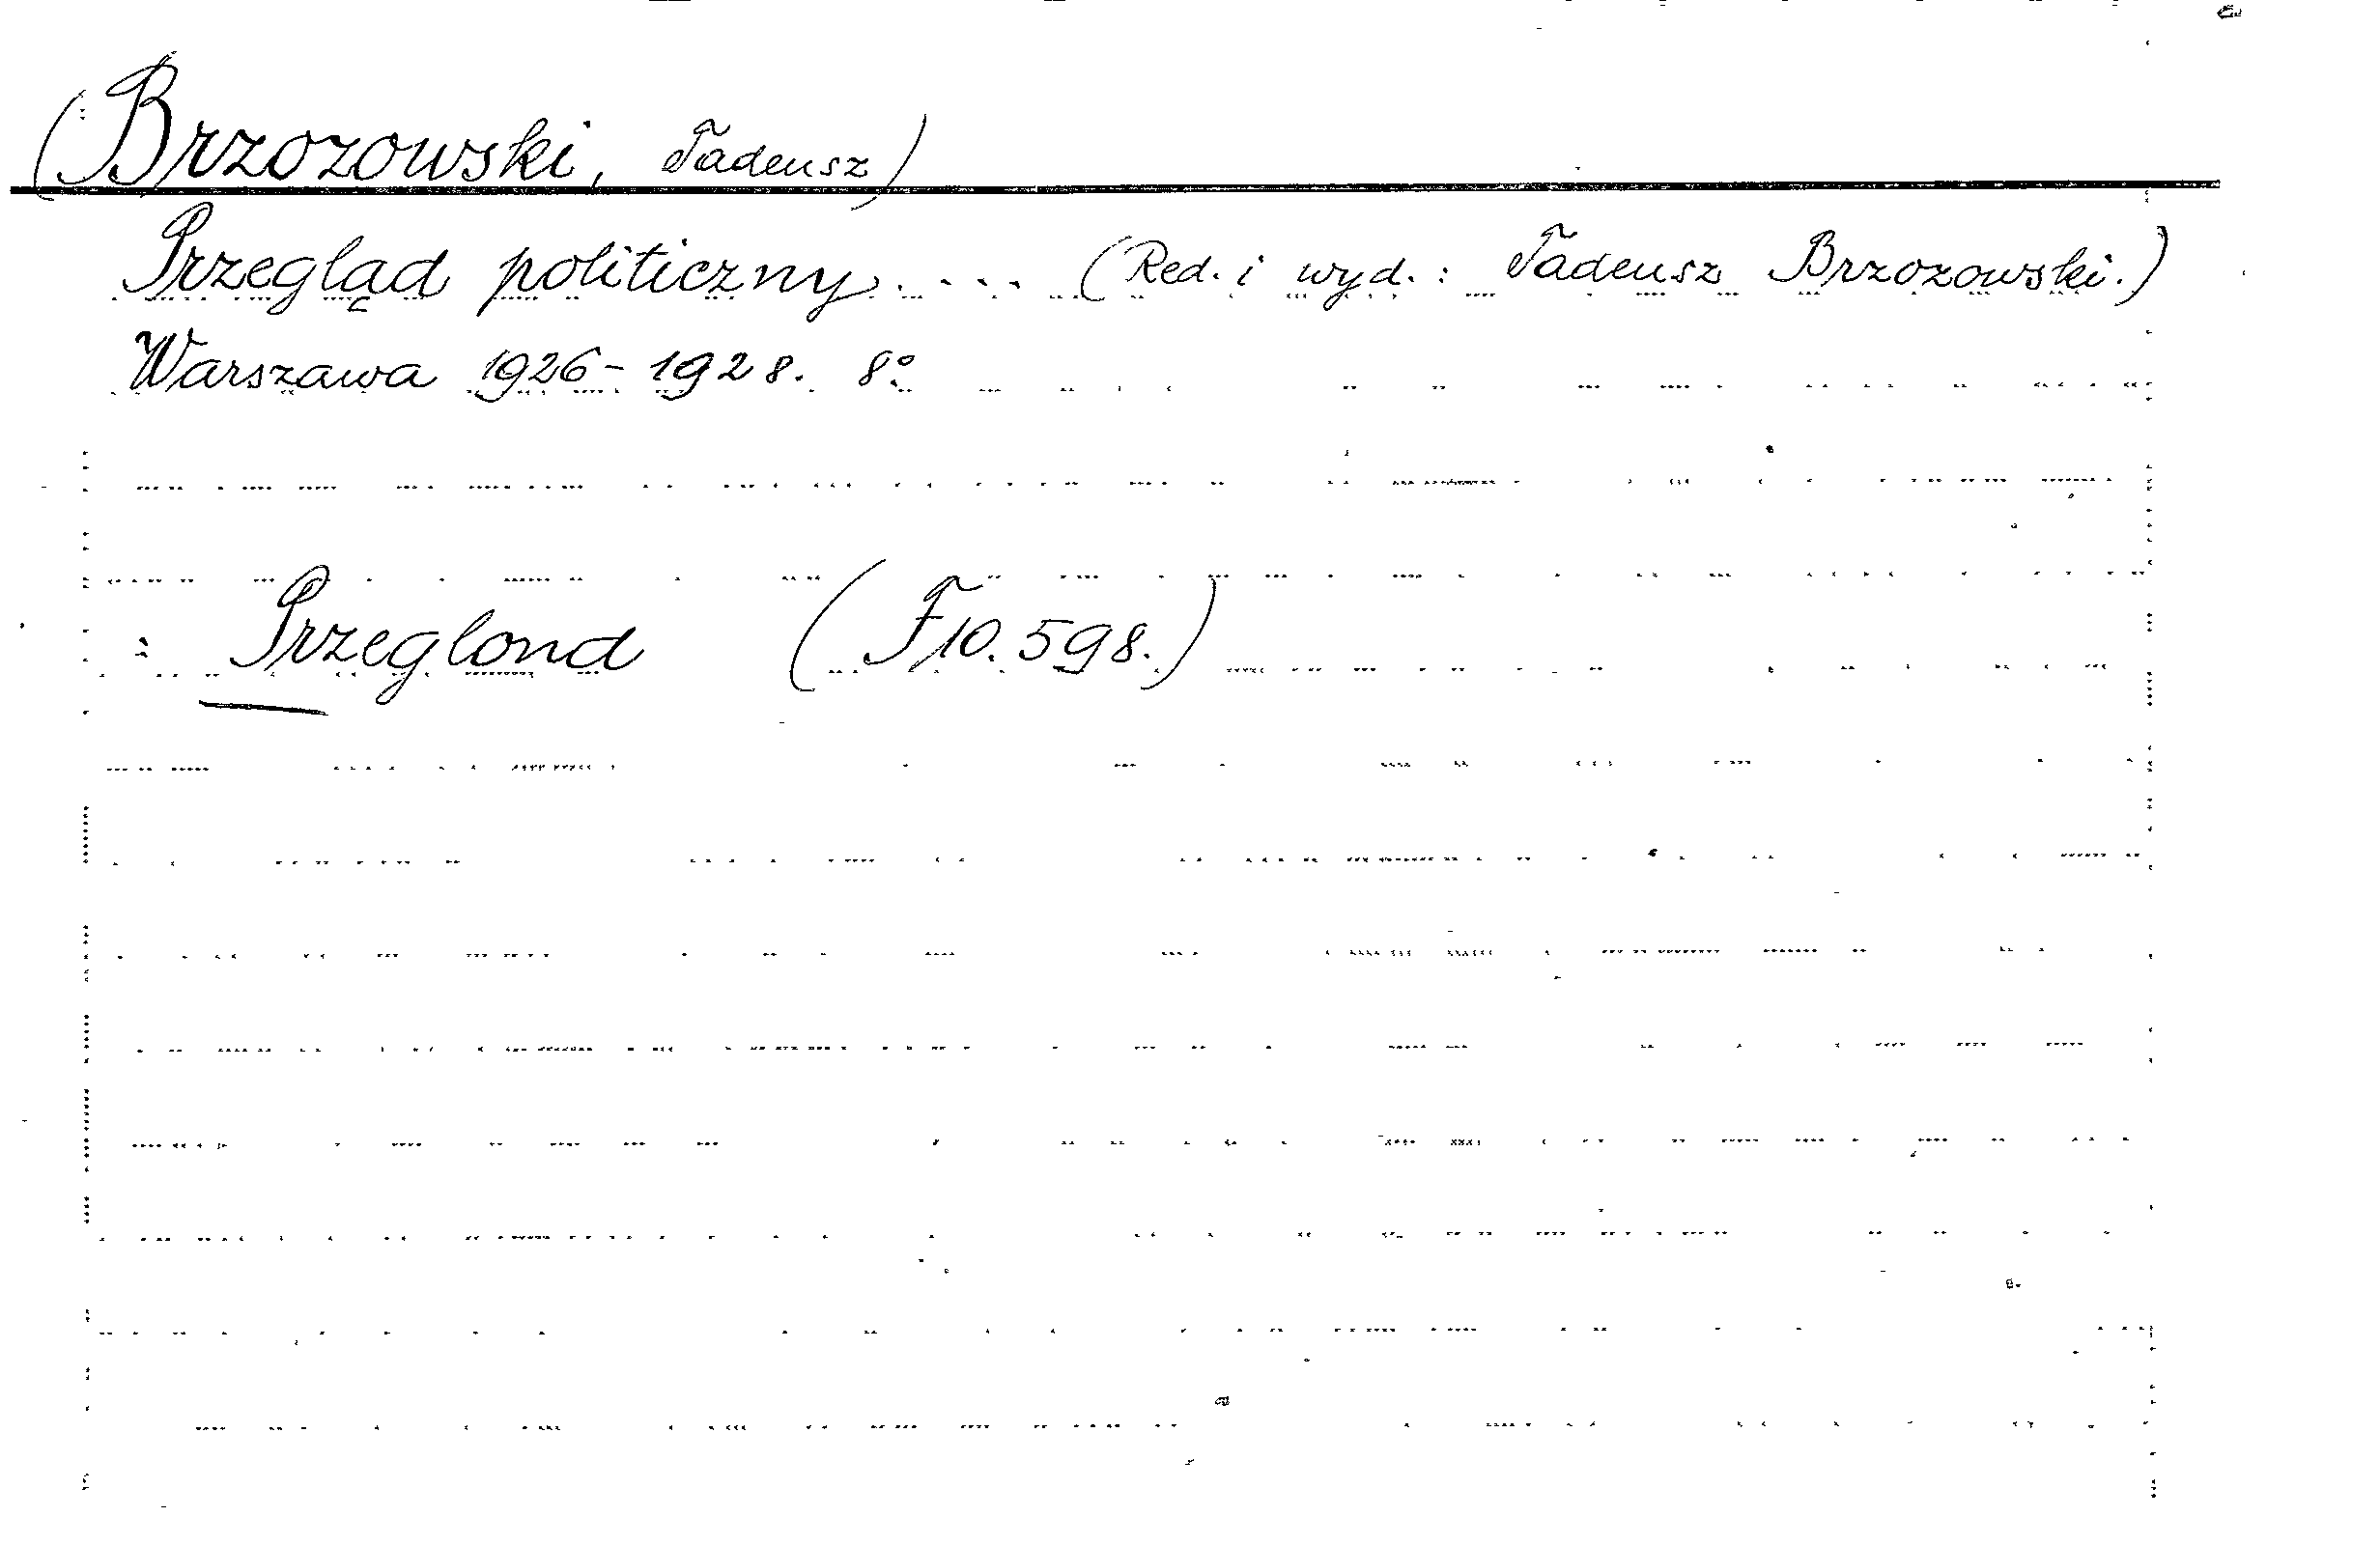 (Brzozowski, Tadeusz)
Przegląd politiczny.... (Red. i wyd.: Tadeusz Brzozowski.)
Warszawa 1926-1928. 8°.
: Przeglond (F10.598.)